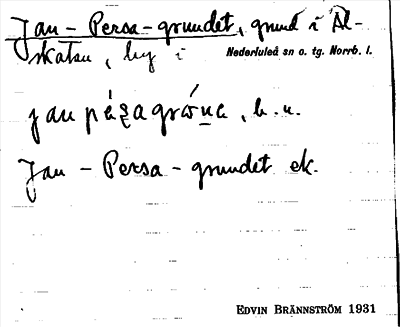 Jan-Persa-grundet, grund i Äl-
skatan, by i Nederluleå sn o. tg. Norrb. l.
jan pa̱ʒagrω̱na, b. n.
Jan-Persa-grundet ek.
EDVIN BRÄNNSTRÖM 1931